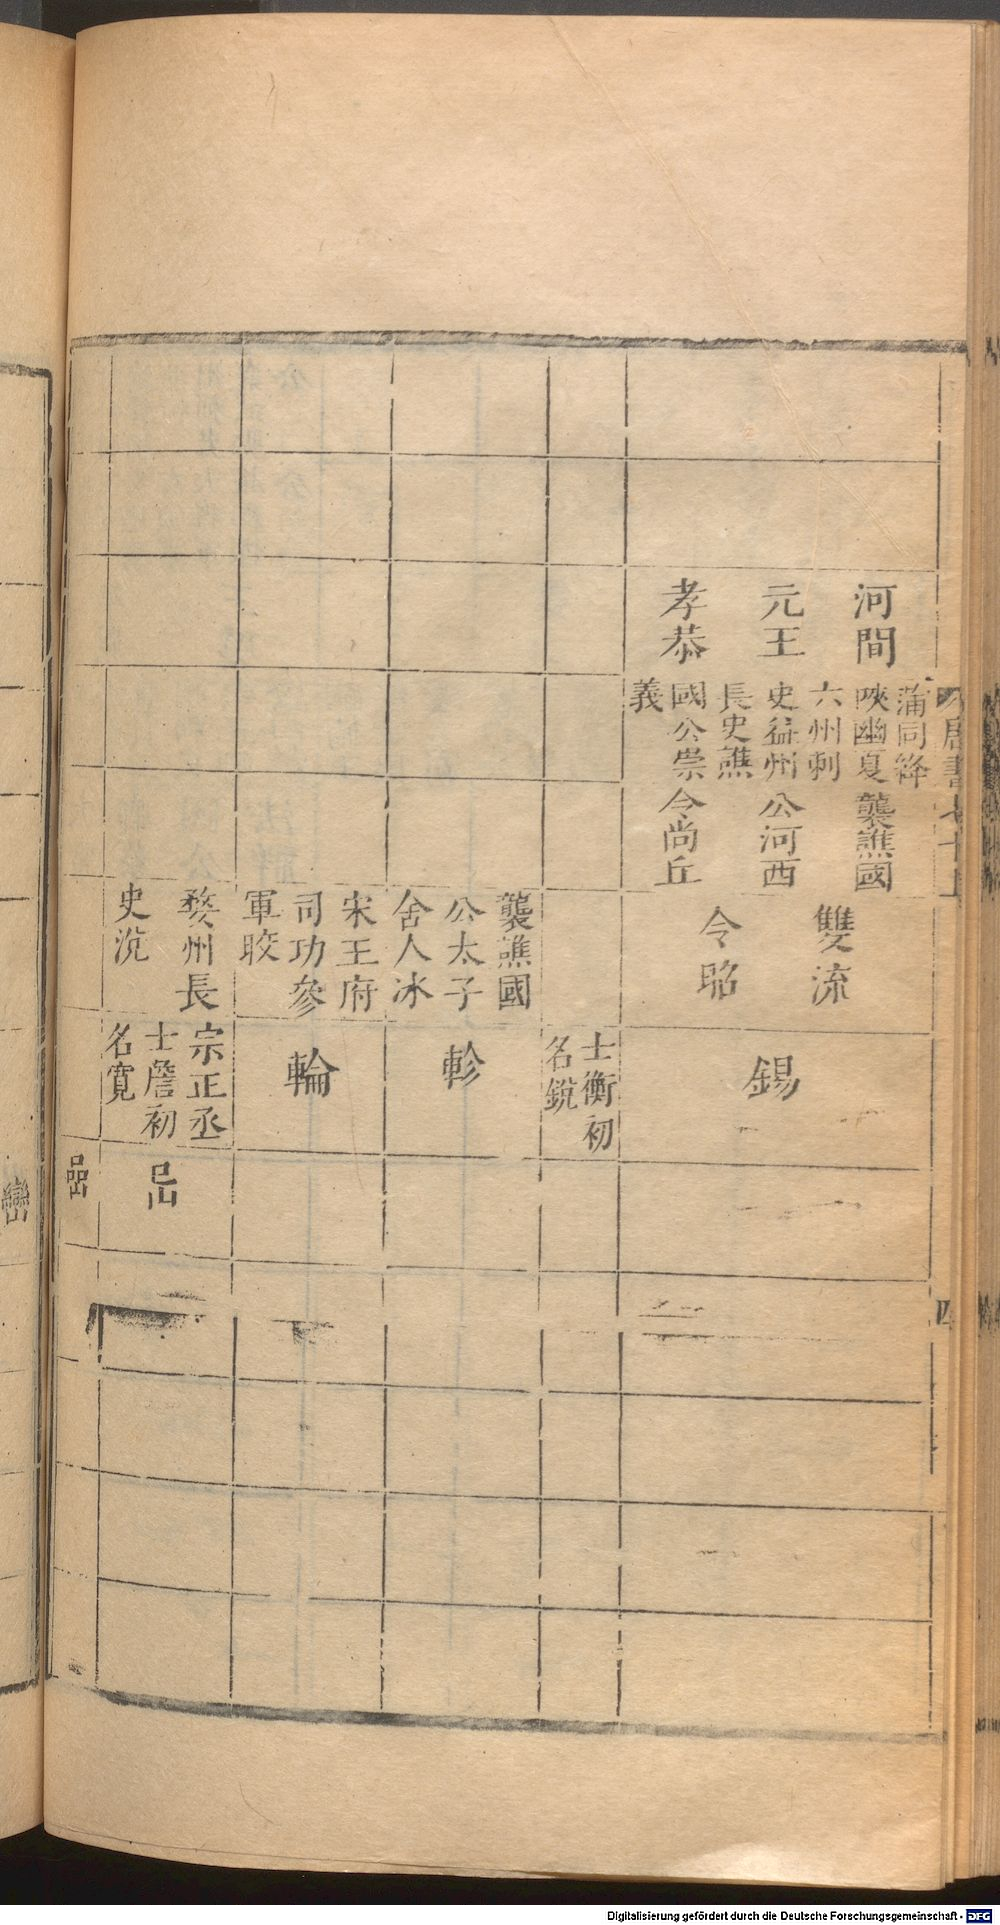 唐書七十上
四
河間
元王
孝恭
蒲同絳
陝幽夏
六州刺
史益州
長史譙
國公崇
義
襲譙國
公河西
令尚丘
雙流
令昭
錫
士衡初
名銳
襲譙國
公太子
舍人冰
軫
宋王府
司功參
軍晈
輪
婺州長
史沇
宗正丞
士詹初
名寬